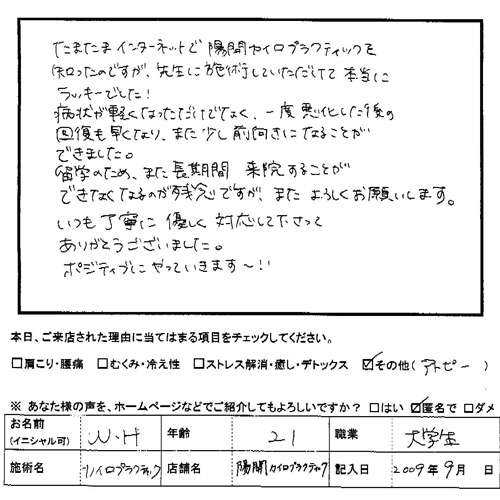 たまたまインターネットで 陽開カイロプラクティックを
知ったのですが、先生に施術していただけて本当に
ラッキーでした!
病状が軽くなっただけでなく、一度悪化した後の
回復も早くなり、また少し前向きになることが
できました。
留学のため、また長期間 来院することが
できなくなるのが残念ですが、またよろしくお願いします。
いつも丁寧に優しく対応して下さって
ありがとうございました。
ポジティブにやっていきます〜!!
本日、ご来店された理由に当てはまる項目をチェックしてください。
□肩こり・腰痛 □むくみ・冷え性 □ストレス解消・癒し・デトックス ☑その他(アトピー)
※ あなた様の声を、ホームページなどでご紹介してもよろしいですか? □はい ☑匿名で □ダメ
お名前 (イニシャル可) W.H 年齢 21 職業 大学生
施術名 カイロプラクティック 店舗名 陽開カイロプラクティック 記入日 2009年 9月 日